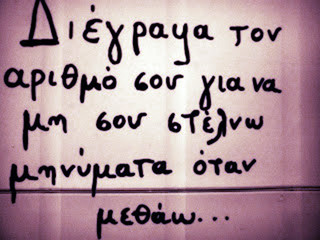 Διέγραψα τον
αριθμό σου για να
μη σου στέλνω
μηνύματα όταν
μεθάω...